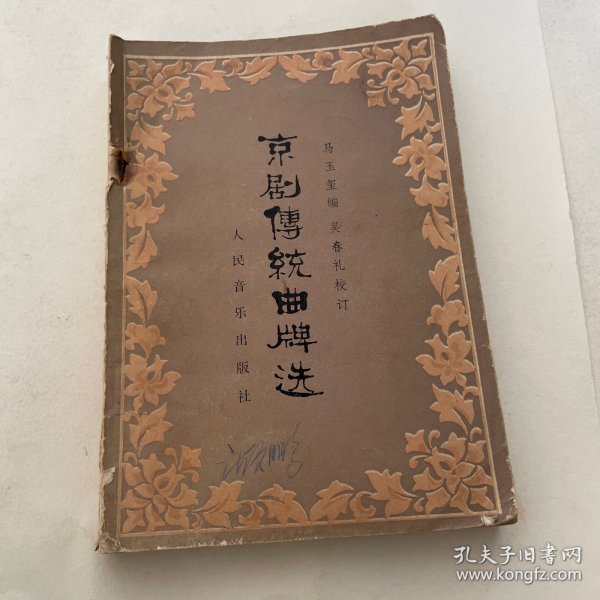 马玉玺编 吴春礼校订
京剧傳統曲牌选
人民音乐出版社
孔夫子旧书网
www.kongfz.com